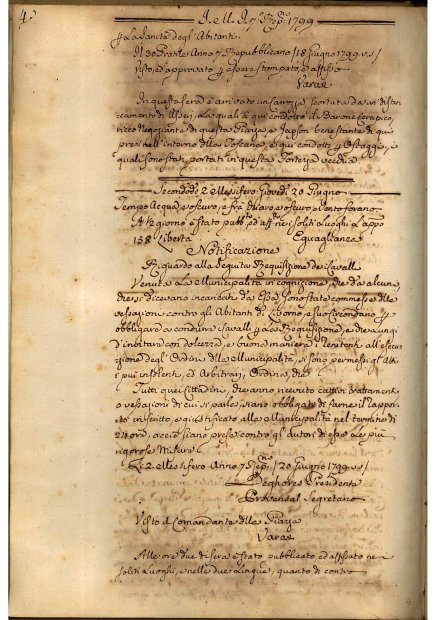 4.
1799
p la Sanità degl' Abitanti.
Il 30 Pratile Anno 7 Repubblicano / 18 Giugno 1799 v.s /
Visto, ed approvato p essere stampato, ed affisso
Varae
In questa sera è arrivato un scortata da un distac-
camento di la quale à qui condotto il Barone
ricco Negoziante di questa Piazza e benestante di qui
presi nell' interno della Toscana, e qui condotti p Ostaggi, e
quali sono stati portati in questa Fortezza vecchia
Secondodì 2 Messifero Giovedì 20 Giugno
Tempo acqua, e oscuro, e fra chiaro, e oscuro, e Vento
A ½ giorno è stato pubb.to ed aff. nei soliti Luoghi
158 Libertà Eguaglianza
Notificazione
Riguardo alla Seguita Requisizione dei Cavalli
Venuta la Municipalità in cognizione, che da alcuni,
che si dicevano incaricati da Essa, sono state commesse delle
vessazioni contro gli Abitanti di Livorno, e suo Circondario p
obbligarli a condurre i Cavalli p la Requisizione, e che lungi
d' invitar con dolcezza, e buona maniera i all' esecu-
zione degl' Ordini della Municipalità, si sono permessi gl' Atti
i più insolenti, ed Arbitrari, Ordina, che
Tutti quei Cittadini, che anno ricevuto cattivi trattamenti
o vessazioni di cui si parla, siano obbligati di farne il rappor-
to in iscritto, e giustificato alla Municipalità nel termine di
24 ore, acciò siano prese contro gl' autori di esse le più
rigorose Misure
Li 2. Messifero Anno 7 Rep.no / 20 Giugno 1799 v.s /
Presidente
Provensal Segretario
Visto il Comandante della Piazza
Varae
Alle ore due di sera è stato pubblicato, ed affissato nei
soliti Luoghi, e nelle due Lingue, quanto di contro